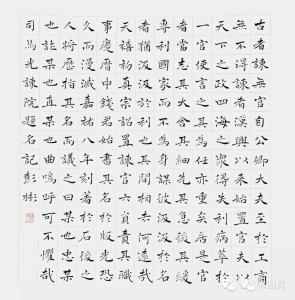 古者諫無官自公卿大夫至於工商
無不得諫者漢興以來始置官夫以
天下之政四海之衆得失利病萃於
一官使言之其為任亦重矣居是官
者當志其大舍其細先其急後其緩
專利國家而不為身謀彼汲汲於名
者猶汲汲於利也其間相去何遠哉
天禧初真宗詔置諫官六員責其職
事慶曆中錢君始書其名於版光恐
久而漫滅嘉祐八年刻著於石後之
人將歷指其名而議之曰某也忠某
也詐某也直某也曲嗚呼可不懼哉
司馬光諫院題名記彭彬